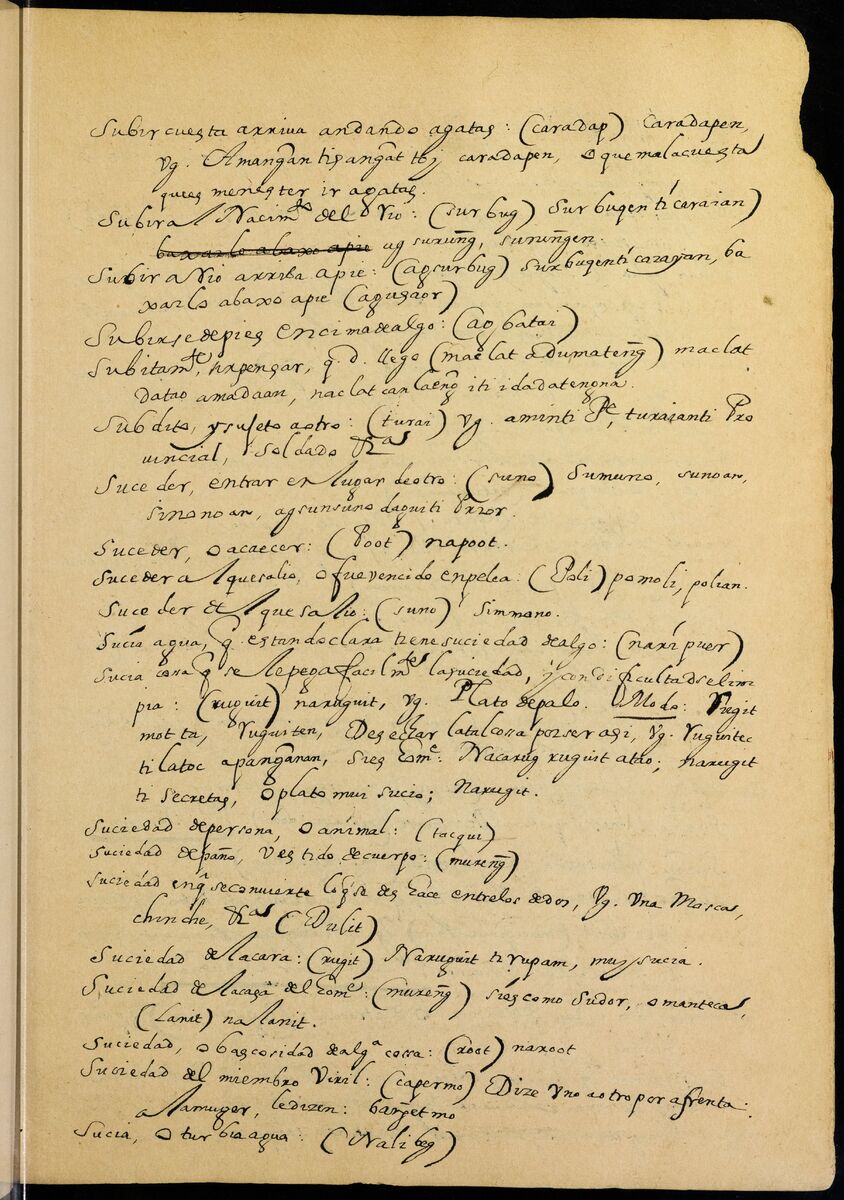 Subir cuesta arriva andando agatas: (caradap) caradapen,
vg. Amangan tisangat toj caradapen, o que mala cuesta
quees menester ir agatas.
Subir al Nacimto del Rio: (surbug) surbugen ti caraian)
baxarlo abaxo apie ug surung, surungen.
Subir a Rio arriba apie: (agsurbug) surbugenti carayan, ba
xarlo abaxo apie (agusaor)
Subirse depies encimadealgo: (ag batai)
Subitamte, sinpensar, q. d. llego (maclat adumateng) maclat
datao amadaan, naclat can laeng iti idadatengna.
Subdito, y sujeto aotro: (turai) vg. aminti Pe, turaianti Pro
vincial, soldado &as
Suceder, entrar en lugar deotro: (suno) sumuno, sunoan,
sinonoan, agsunsuno daguiti Prior.
Suceder, o acaecer: (Poot) napoot.
Suceder al quesalio, o fuevencido enpelea: (Poli) pomoli, polian.
Suceder el quesalio: (suno) simmono.
Sucia agua, q. estandoclara tienesuciedad dealgo: (naripuer)
Sucia cosa q se le pega facilmte lasuciedad, y con dificultad selim
pia: (ruguit) naruguit, vg. Plato depalo. Modo: Rugit
motta, ruguiten, Desechar latalcosa porser asi, vg. ruguitec
tilatoc apanganan, sies home: Nacarug ruguit atao; narugit
ti secretas, o plato mui sucio; Narugit.
Suciedad depersona, o animal: (tacqui)
Suciedad depaño, vestido decuerpo: (mureng)
Suciedad enq. seconvierte loq. se deshace entrelos dedos, vg. una Moscas,
chinche, &as (Dulit)
Suciedad delacara: (rugit) Naruguit ti rupam, muy sucia.
Suciedad delacasa del home: (mureng) siescomo sudor, o mantecas,
(Lanit) nalanit.
Suciedad, o bascosidad dealga cossa: (root) naroot
Suciedad del miembro viril: (capermo) Dize uno aotro por afrenta.
alamuger, ledizen: bangetmo
Sucia, o turbia agua: (Nalibeg)